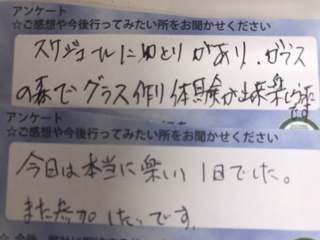 アンケート
☆ご感想や今後行ってみたい所をお聞かせください
スケジュールにゆとりがあり、ガラス
の森でグラス作り体験が出来楽しかった
です
アンケート
☆ご感想や今後行ってみたい所をお聞かせください
今日は本当に楽しい1日でした。
また参加したいです。